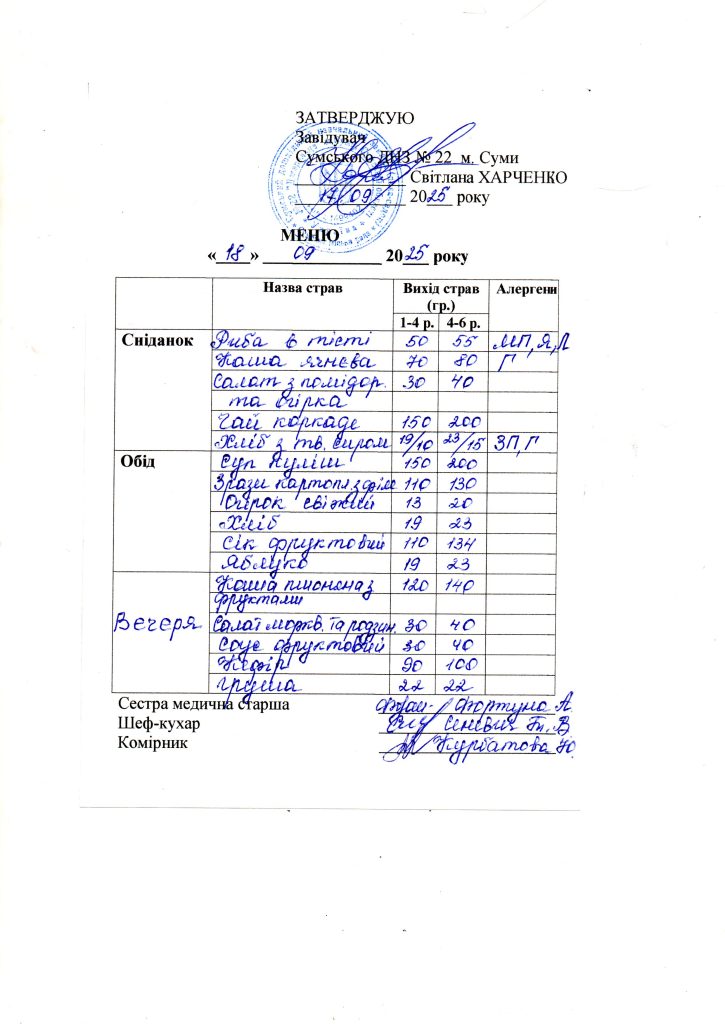 ЗАТВЕРДЖУЮ
Завідувач
Сумського ДНЗ № 22 м. Суми
Світлана ХАРЧЕНКО
17 09 2025 року
МЕНЮ
« 18 » 09 2025 року
Назва страв Вихід страв (гр.) Алергени
1-4 р. 4-6 р.
Сніданок Риба в тісті 50 55 МП, Я, Л
Каша ячнєва 70 80 Г
Салат з помідор. 30 40
та огірка
Чай каркаде 150 200
Хліб з тв. сиром 19/10 23/15 ЗП, Г
Обід Суп Куліш 150 200
Зрази картопл. з філе 110 130
Огірок свіжий 13 20
Хліб 19 23
Сік фруктовий 110 134
Яблуко 19 23
Вечеря Каша пшоняна з 120 140
фруктами
Салат моркв. та родзин. 30 40
Соус фруктовий 30 40
Кефір 90 100
Груша 22 22
Сестра медична старша Фортуна А.
Шеф-кухар
Комірник Курбатова Ю.